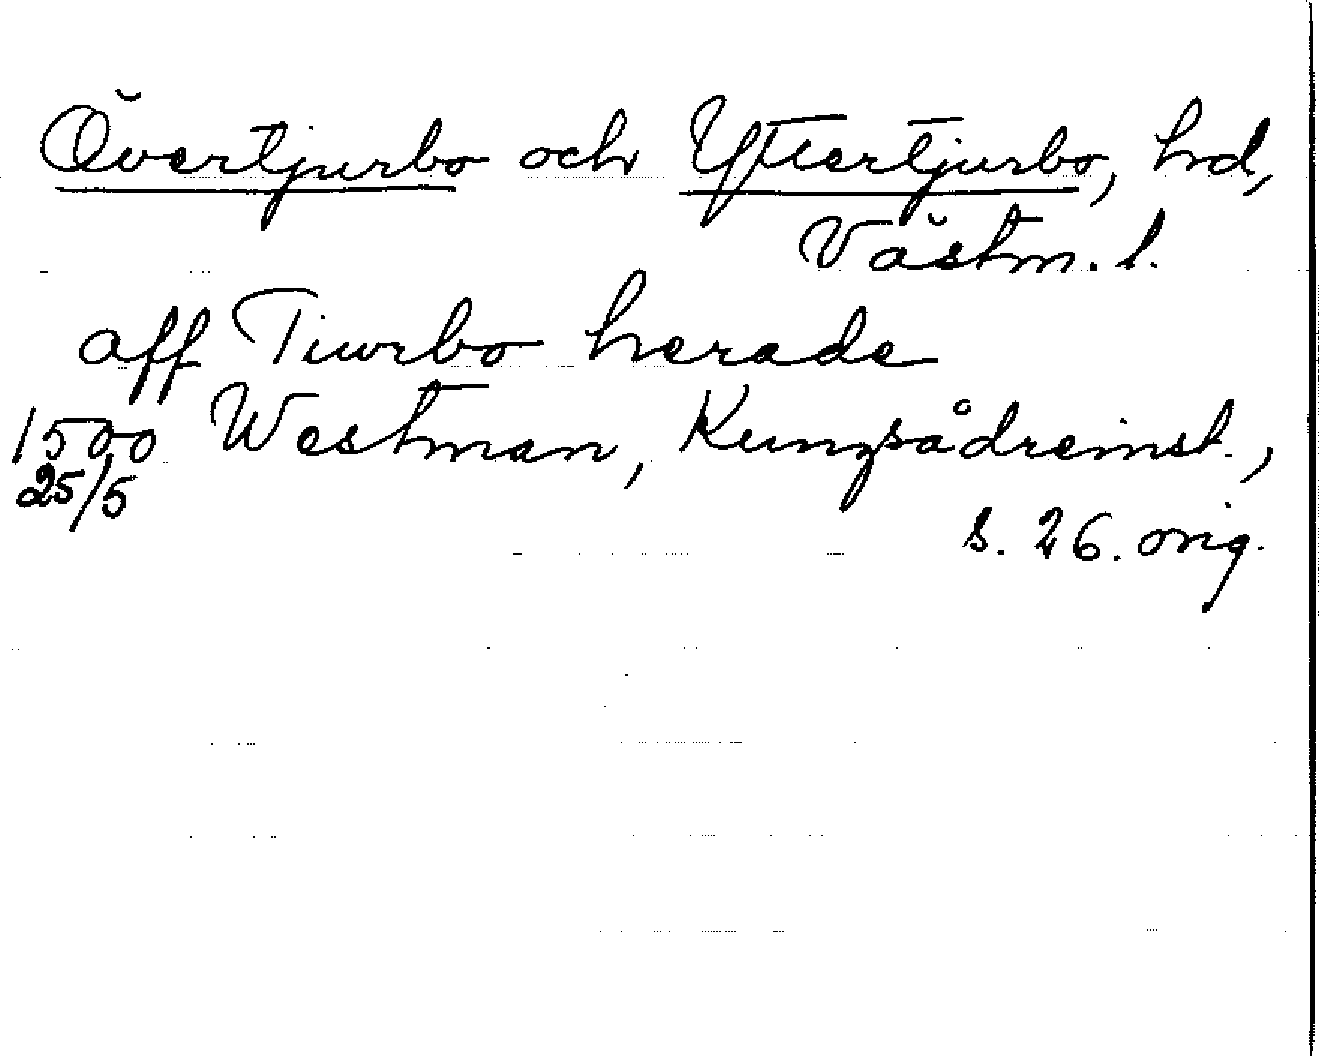 Övertjurbo och Yttertjurbo, hd,
Västm. l.
aff Tiwrbo herade
1500 Westman, Kungsådreinst.,
25/5
s. 26. orig.